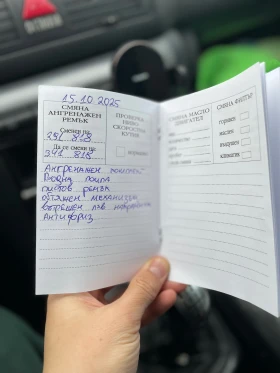 15.10.2025
СМЯНА
АНГРЕНАЖЕН
РЕМЪК
Сменен на:
Да се смени на:
341 818
ПРОВЕРКА
НИВО
СКОРОСТНА
КУТИЯ
СМЯНА МАСЛО
ДВИГАТЕЛ
СМЯНА ФИЛТЪР
горивен
маслен
въздушен
климатик
Ангренажен
Водна помпа
пистов ремък
обтяжен механизъм
вътрешен ляв
Антифриз